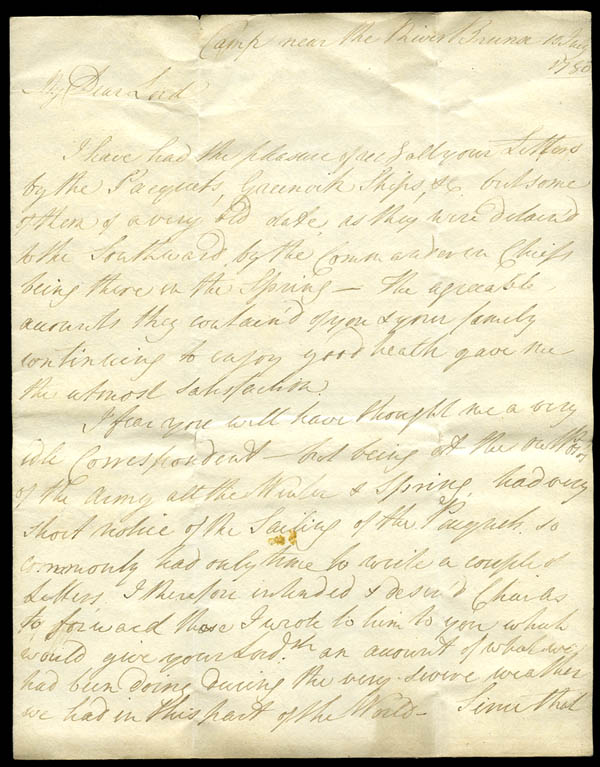 Camp near the River Brunx 12 July
1780
My Dear Lord
I have had the pleasure of rec.g all your Letters
by the Pacquets, Greenwich Ships, &c but some
of them of a very old date, as they were detain'd
to the Southward, by the Commander in Chiefs
being there in the Spring — The agreeable
accounts they contain'd of you & your family
continuing to enjoy good heath gave me
the utmost satisfaction.
I fear you will have thought me a very
idle Correspondent — but being at the out Posts
of the Army all the Winter & Spring, had very
short notice of the Sailing of the Pacquets. so
commonly had only time to write a couple of
Letters, I therefore intended & desir'd Charles
to forward those I wrote to him to you which
would give your Lord.sh an account of what we
had been doing during the very severe weather
we had in this part of the World — Since that